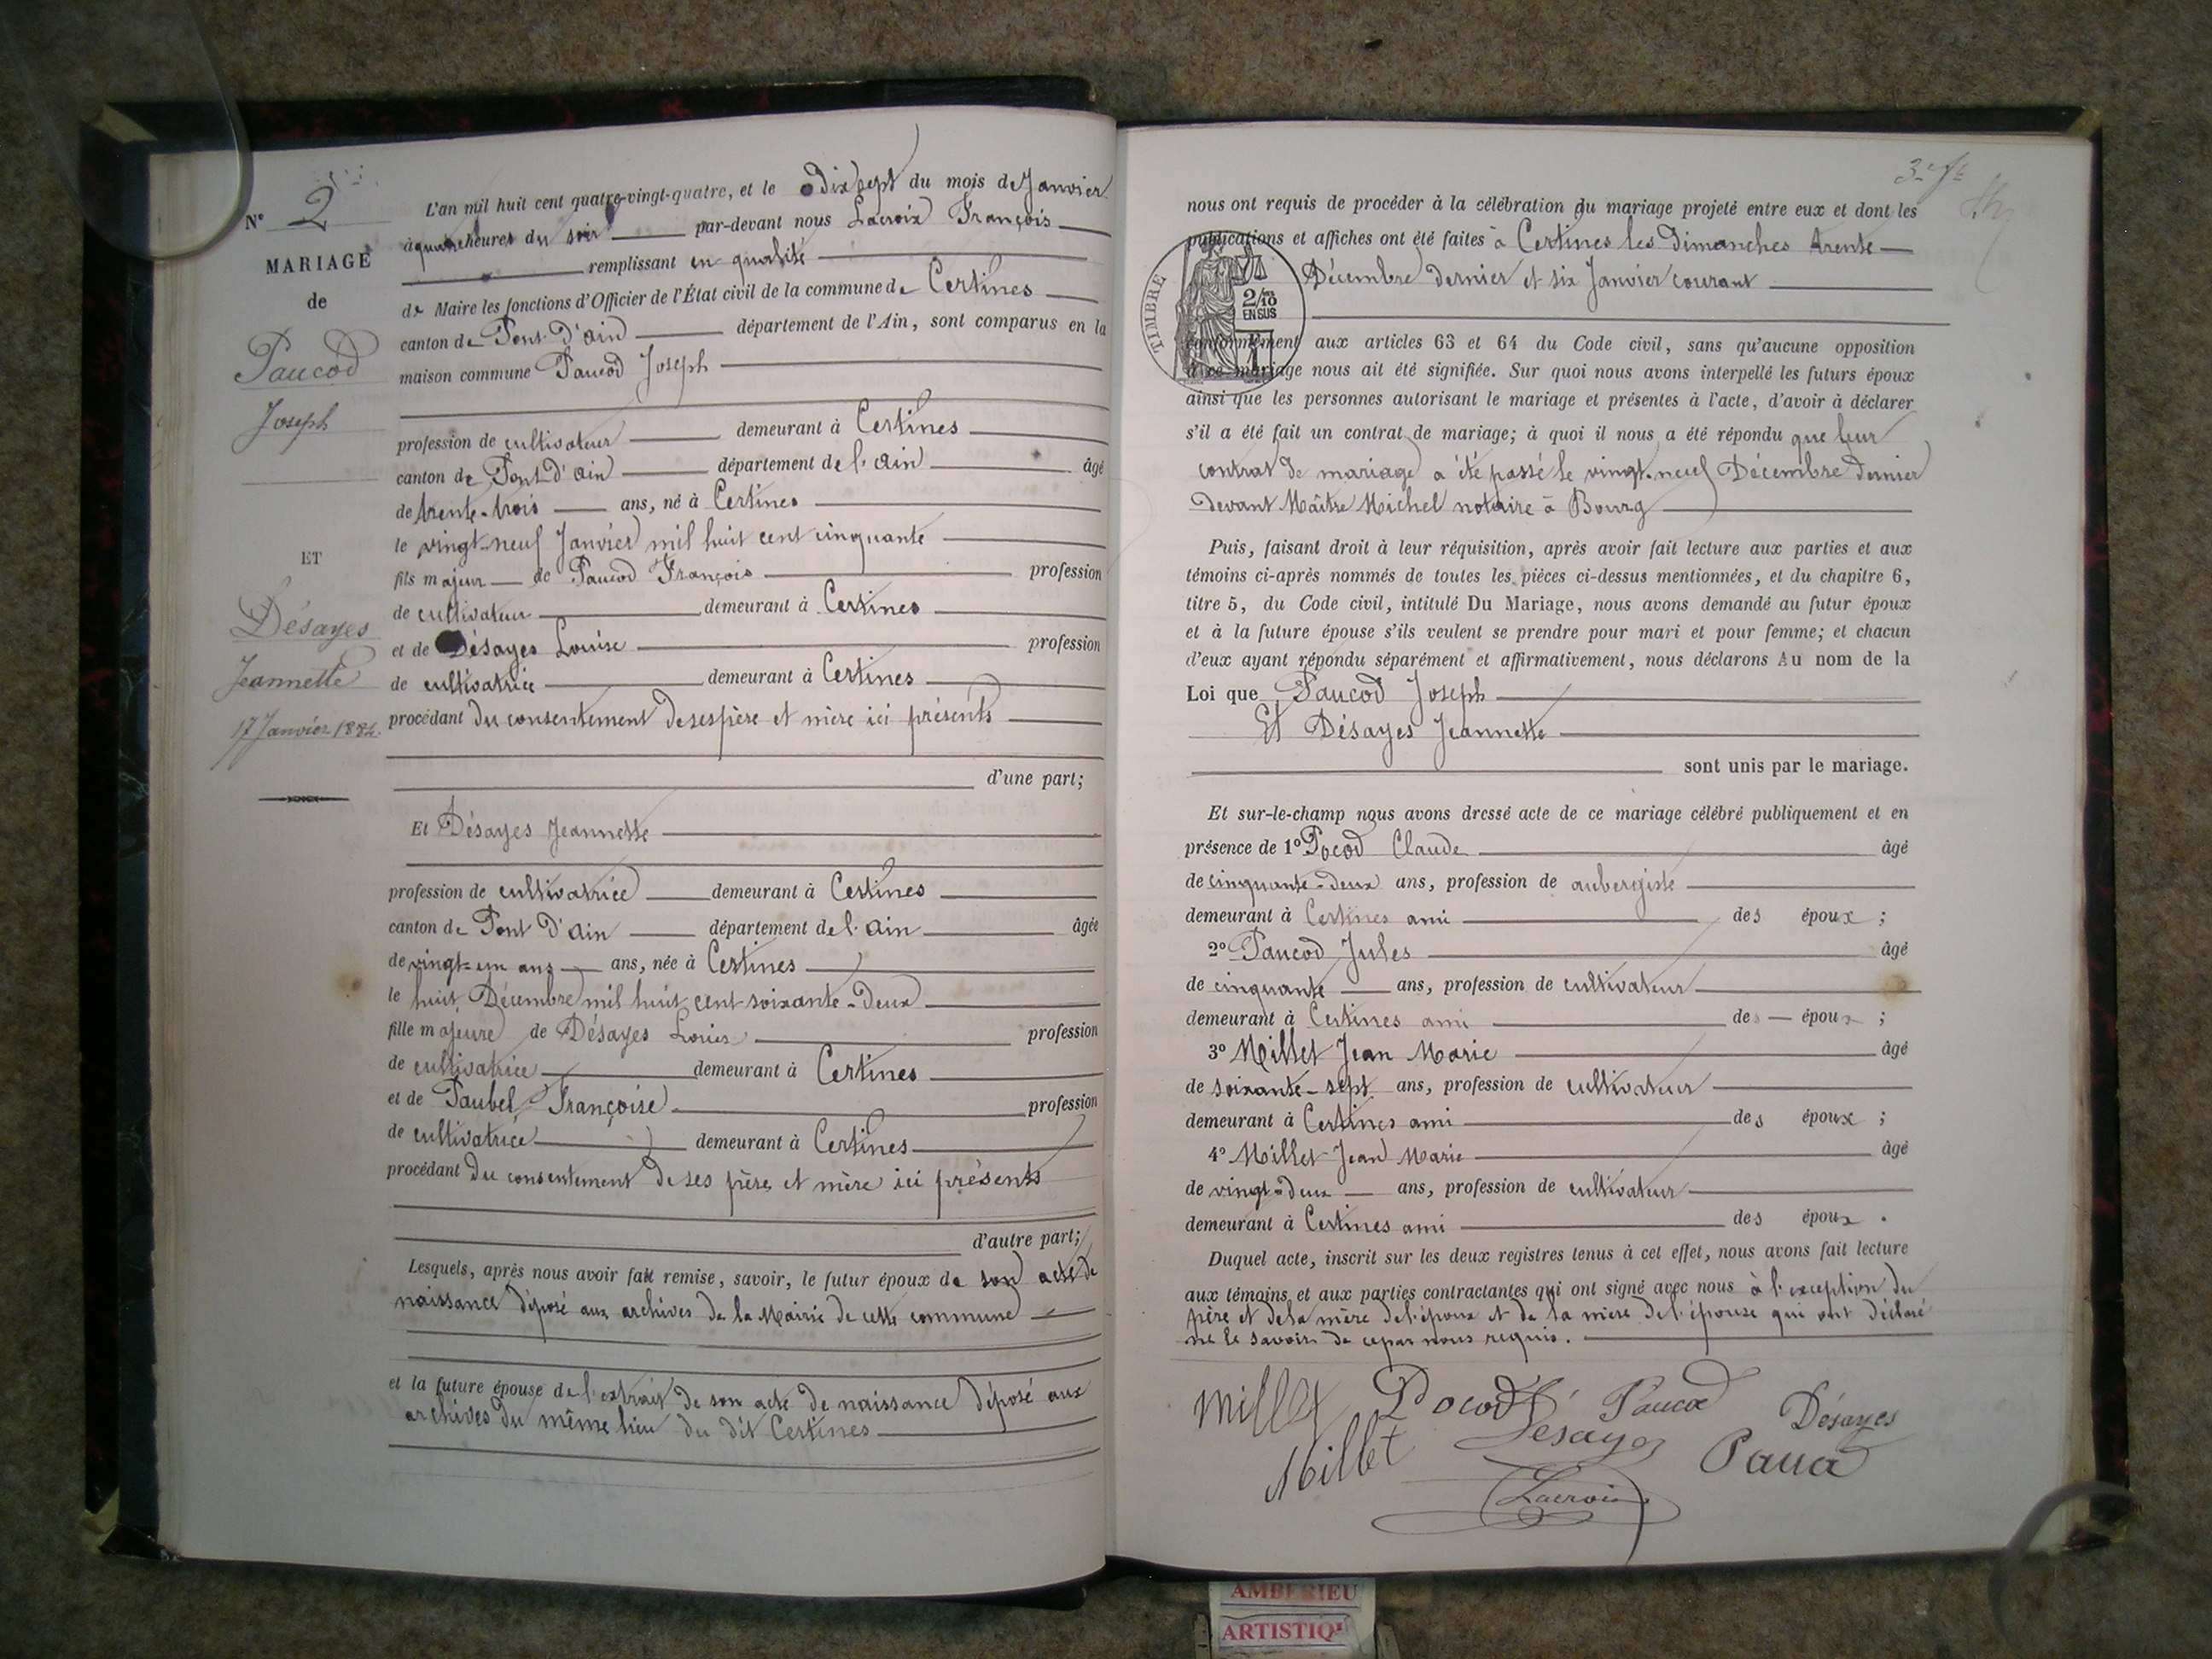 N° 2
MARIAGE
de
Paucod
Joseph
ET
Désayes
Jeannette
17 Janvier 1884.
L'an mil huit cent quatre-vingt-quatre, et le dix sept du mois de Janvier
à quatre heures du soir par-devant nous Lacroix François
remplissant en qualité
de Maire les fonctions d'Officier de l'État civil de la commune de Certines
canton de Pont-D'ain département de l'Ain, sont comparus en la
maison commune Paucod Joseph
profession de cultivateur demeurant à Certines
canton de Pont D'ain département de l'ain âgé
de trente-trois ans, né à Certines
le vingt-neuf Janvier mil huit cent cinquante
fils majeur de Paucod François profession
de cultivateur demeurant à Certines
et de Désayes Louise profession
de cultivatrice demeurant à Certines
procédant du consentement de ses père et mère ici présents
d'une part;
Et Désayes Jeannette
profession de cultivatrice demeurant à Certines
canton de Pont D'ain département de l'ain âgée
de vingt-un ans ans, née à Certines
le huit Décembre mil huit cent soixante-deux
fille majeure de Désayes Louis profession
de cultivatrice demeurant à Certines
et de Paubel Françoise profession
de cultivatrice demeurant à Certines
procédant du consentement de ses père et mère ici présents
d'autre part;
Lesquels, après nous avoir fait remise, savoir, le futur époux de son acte de
naissance déposé aux archives de la Mairie de cette commune
et la future épouse de l'extrait de son acte de naissance déposé aux
archives du même lieu du dit Certines
nous ont requis de procéder à la célébration du mariage projeté entre eux et dont les
publications et affiches ont été faites à Certines les dimanches trente
Décembre dernier et six Janvier courant
TIMBRE
2/10
EN SUS
conformément aux articles 63 et 64 du Code civil, sans qu'aucune opposition
à ce mariage nous ait été signifiée. Sur quoi nous avons interpellé les futurs époux
ainsi que les personnes autorisant le mariage et présentes à l'acte, d'avoir à déclarer
s'il a été fait un contrat de mariage; à quoi il nous a été répondu que leur
contrat de mariage a été passé le vingt-neuf Décembre dernier
devant Maître Michel notaire à Bourg
Puis, faisant droit à leur réquisition, après avoir fait lecture aux parties et aux
témoins ci-après nommés de toutes les pièces ci-dessus mentionnées, et du chapitre 6,
titre 5, du Code civil, intitulé Du Mariage, nous avons demandé au futur époux
et à la future épouse s'ils veulent se prendre pour mari et pour femme; et chacun
d'eux ayant répondu séparément et affirmativement, nous déclarons Au nom de la
Loi que Paucod Joseph
Et Désayes Jeannette
sont unis par le mariage.
Et sur-le-champ nous avons dressé acte de ce mariage célébré publiquement et en
présence de 1° Pocod Claude âgé
de cinquante-deux ans, profession de aubergiste
demeurant à Certines ami des époux ;
2° Paucod Jules âgé
de cinquante ans, profession de cultivateur
demeurant à Certines ami des époux ;
3° Millet Jean Marie âgé
de soixante-sept ans, profession de cultivateur
demeurant à Certines ami des époux ;
4° Millet Jean Marie âgé
de vingt-deux ans, profession de cultivateur
demeurant à Certines ami des époux .
Duquel acte, inscrit sur les deux registres tenus à cet effet, nous avons fait lecture
aux témoins et aux parties contractantes qui ont signé avec nous à l'exception du
père et de la mère de l'époux et de la mère de l'épouse qui ont déclaré
ne le savoir de ce par nous requis.
Millet Pocod Paucod Désayes
Millet Desayes Paucod
Lacroix
AMBERIEU
ARTISTIQ